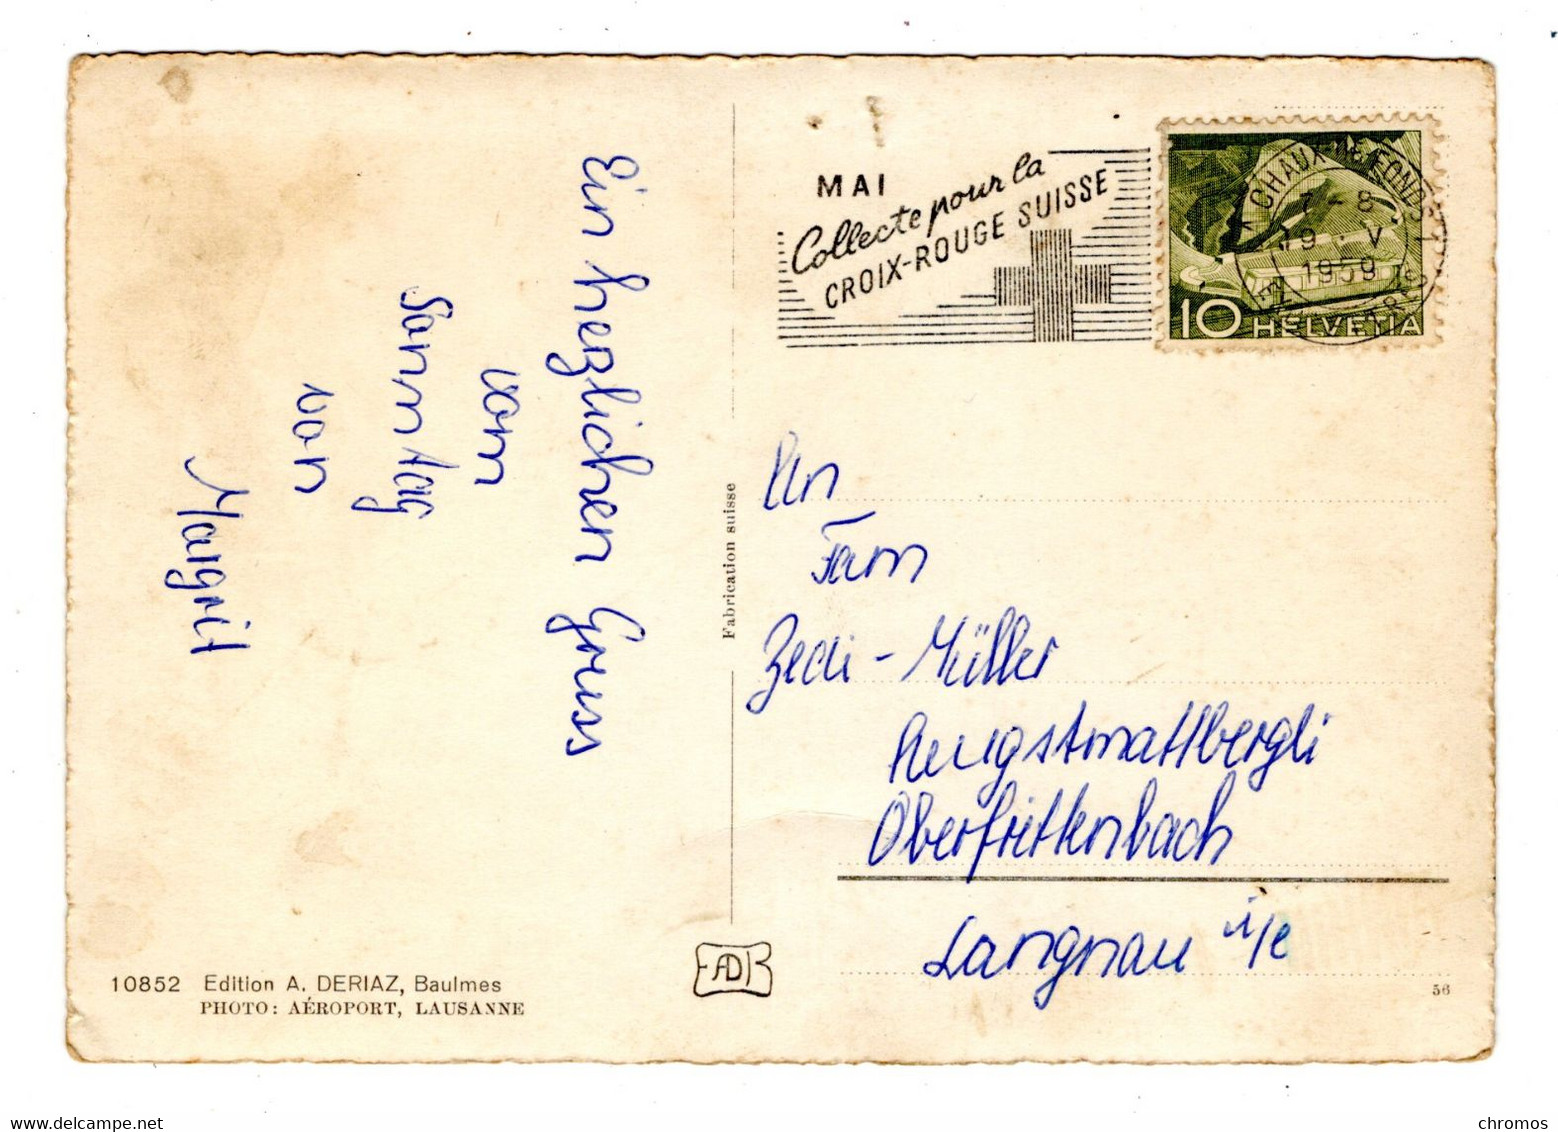 Ein herzlichen Gruss
vom
Sonntag
von
Margrit
10852 Edition A. DERIAZ, Baulmes
PHOTO: AÉROPORT, LAUSANNE
Fabrication suisse
MAI
Collecte pour la
CROIX-ROUGE SUISSE
CHAUX-DE-FONDS 1
7-8
19.V.
1959
10 HELVETIA
An
Fam
Zedi-Müller
Augstmattbergli
Oberfrittenbach
Langnau i/e
56
www.delcampe.net
chromos